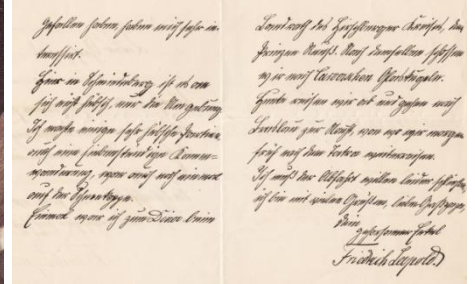 gefallen haben, haben mich sehr in-
teressirt.
Hier in Schmiedeberg ist es an
sich nicht hübsch, nur die Umgebung.
Ich machte einige sehr hübsche Partien,
auch eine siebenstündige Kamm-
wanderung, war auch noch einmal
auf der Schneekoppe.
Einmal war ich zum Diner beim
Landrath des Hirschberger Kreises, dem
Prinzen Reuß. Nach demselben schossen
wir nach
Heute reisen wir ab und gehen nach
Breslau zur Nacht, von wo wir morgen
früh nach der Tatra weiterreisen.
Ich muß der Abfahrt wegen leider schließen,
ich bin mit vielen Grüßen, lieber Großpapa,
Dein
gehorsamer Enkel
Friedrich Leopold.